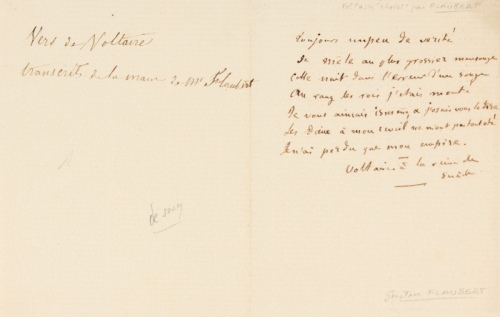 Vers de Voltaire
transcrits de la main de Mr Flaubert
de sacy
par FLAUBERT
Toujours un peu de verité
se mêle au plus grossier mensonge
Cette nuit dans l'erreur d'un songe
Au rang des rois j'étais monté
Je vous aimais &  j'osais vous le dire
Les Dieux à mon reveil ne m'ont pas tout oté
Je n'ai perdu que mon empire.
Voltaire à la reine de
Suède
Gustave FLAUBERT